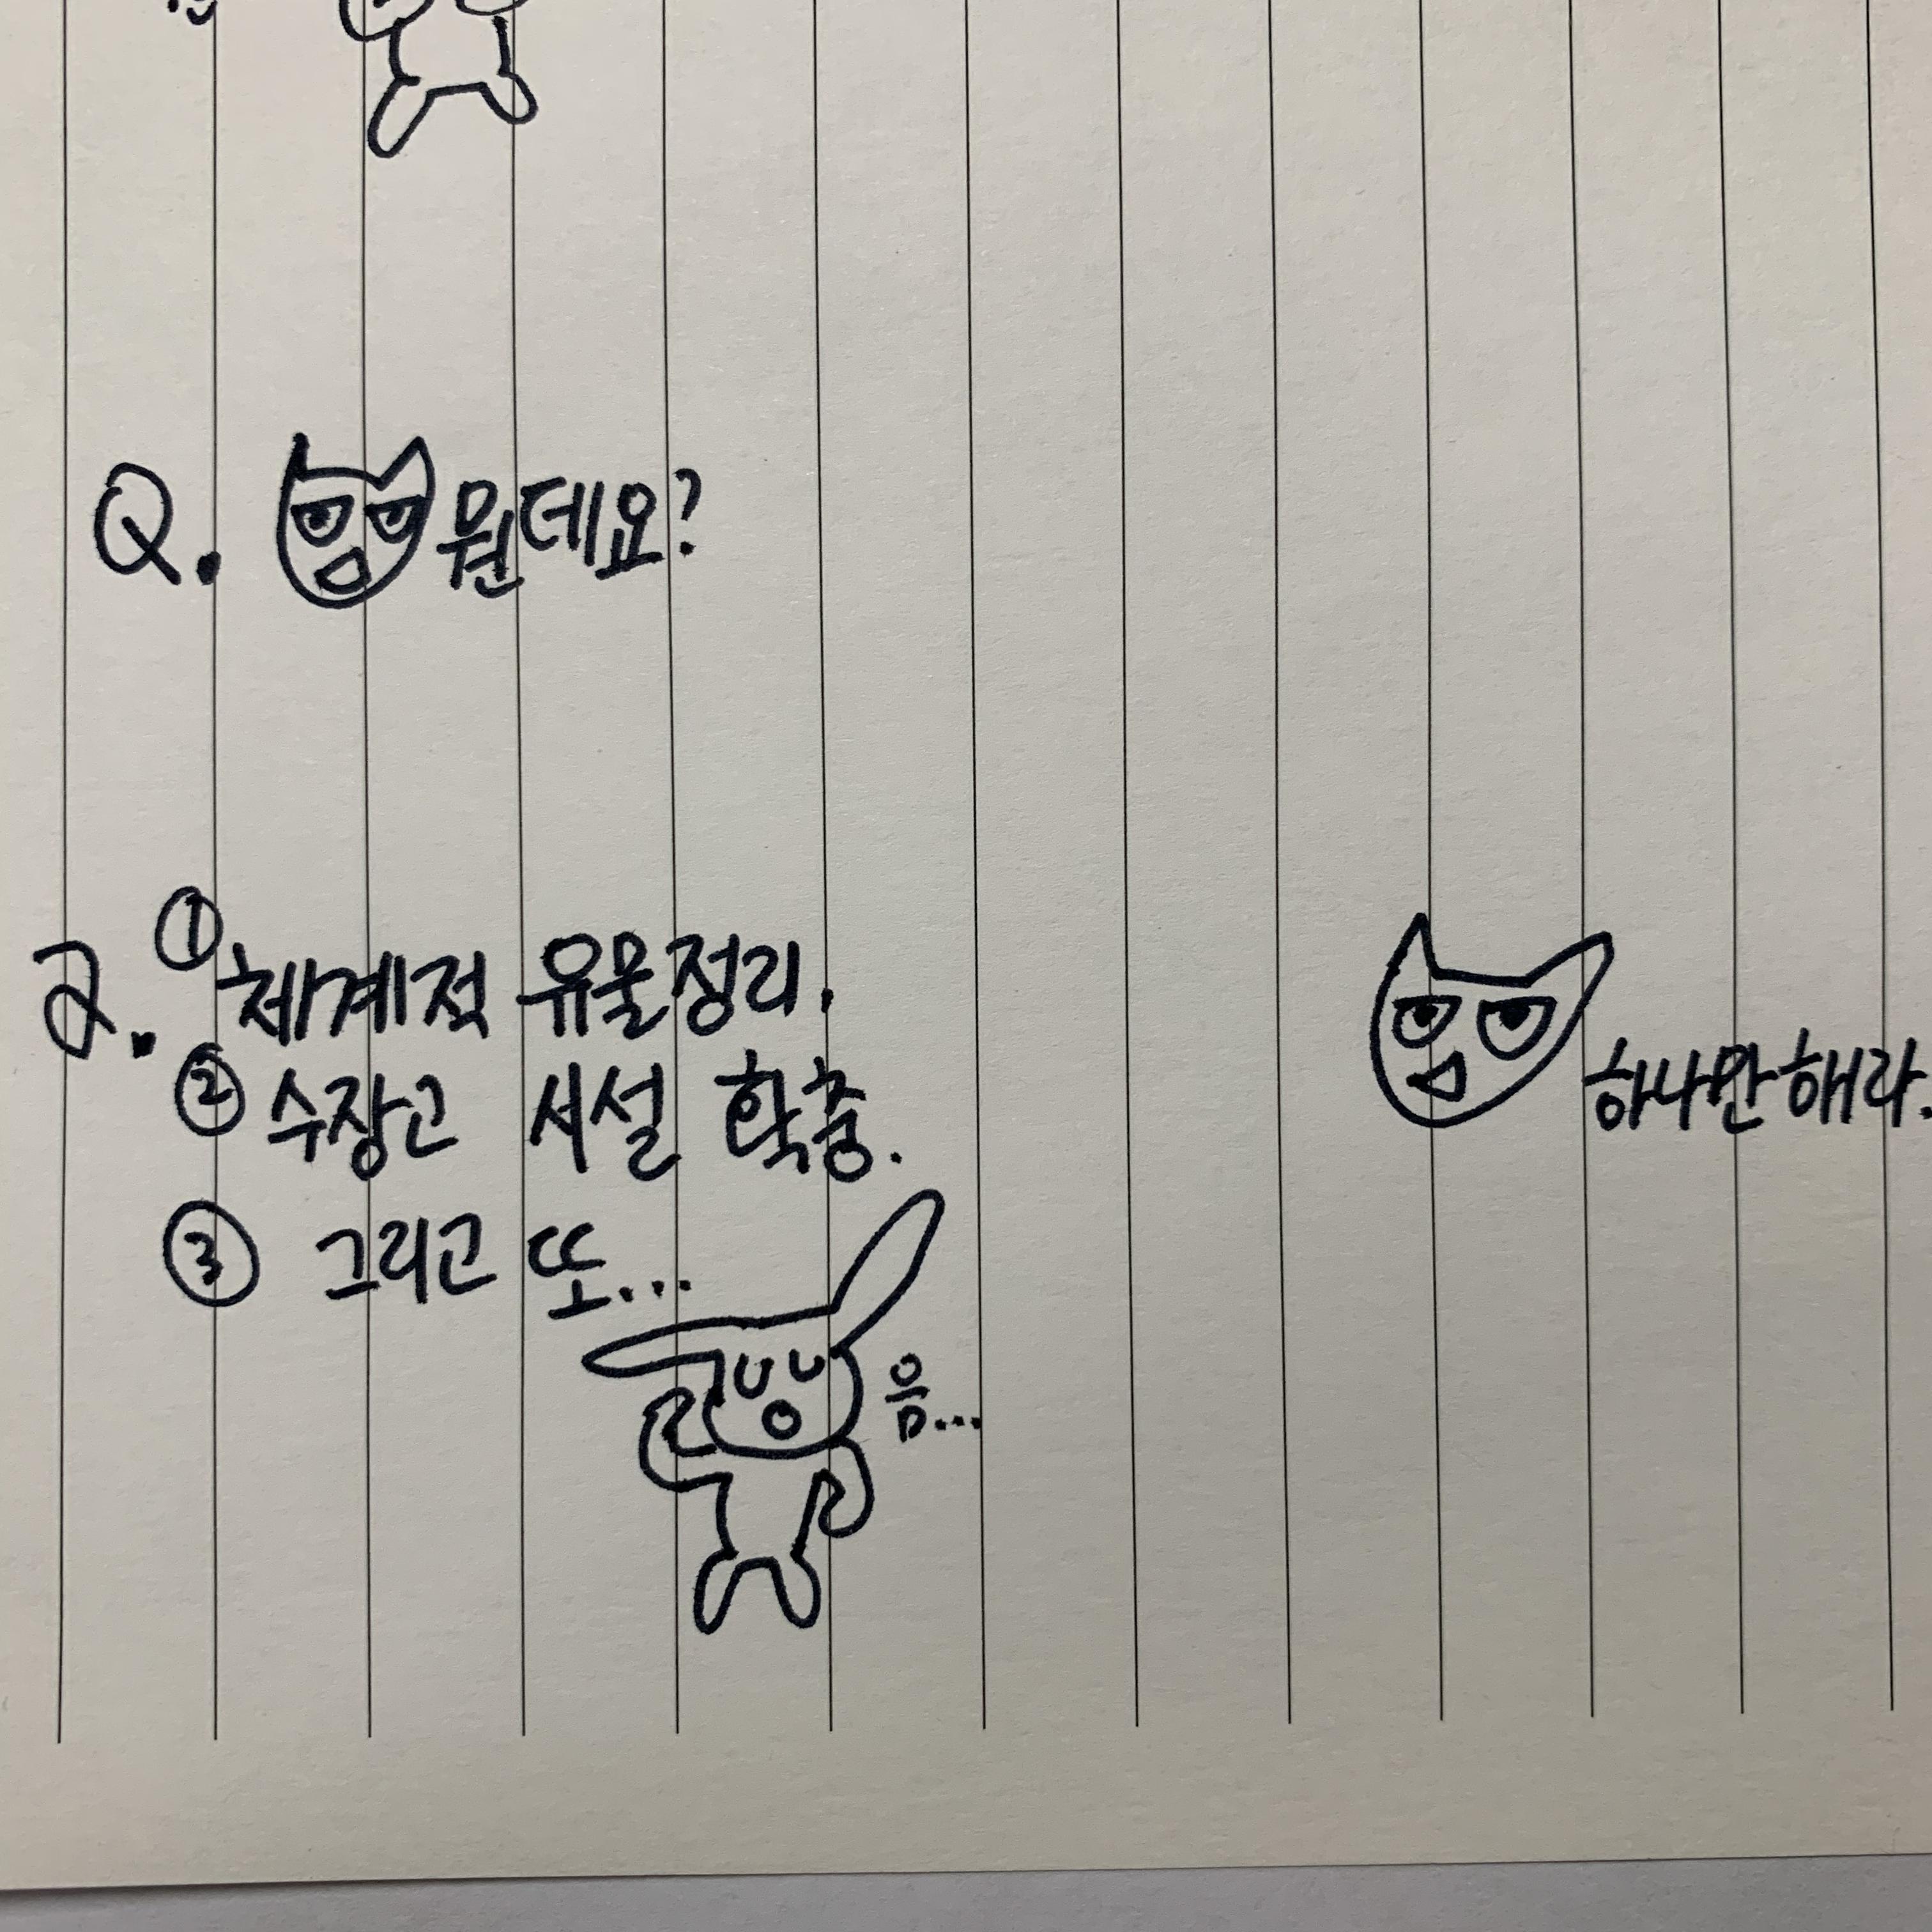 Q. 뭔데요?
a. ① 체계적 유물정리.
② 수장고 시설 확충.
하나만 해라.
③ 그리고 또...
음...